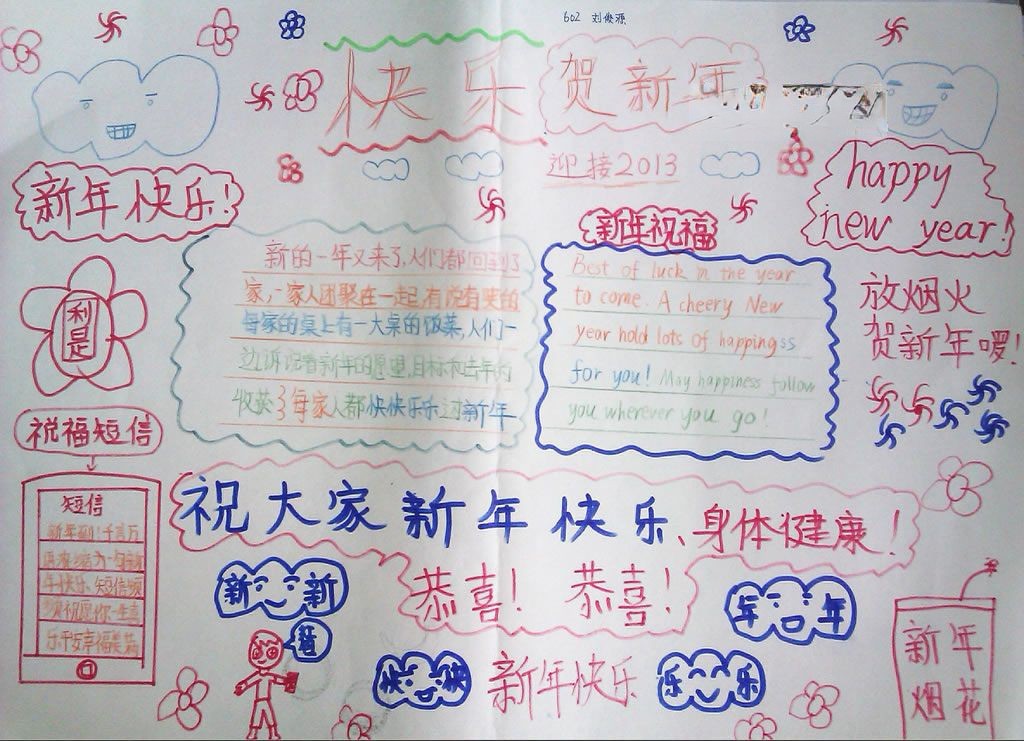 602 刘俊源
快乐
贺新年
迎接2013
新年快乐!
happy
new year!
新年祝福
新的一年又来了,人们都回到了
家,一家人团聚在一起,有说有笑的
每家的桌上有一大桌的饭菜,人们一
边诉说着新年的愿望,目标和去年的
收获了每家人都快快乐乐过新年
Best of luck in the year
to come. A cheery New
year hold lots of happingss
for you! May happiness follow
you wherever you go!
利是
放烟火
贺新年啰!
祝福短信
短信
新年到!千言万
年快乐、短信频
频祝愿你一生喜
祝大家新年快乐、身体健康!
恭喜! 恭喜!
新 新
年 年
快 快
新年快乐
乐 乐
新年
烟花